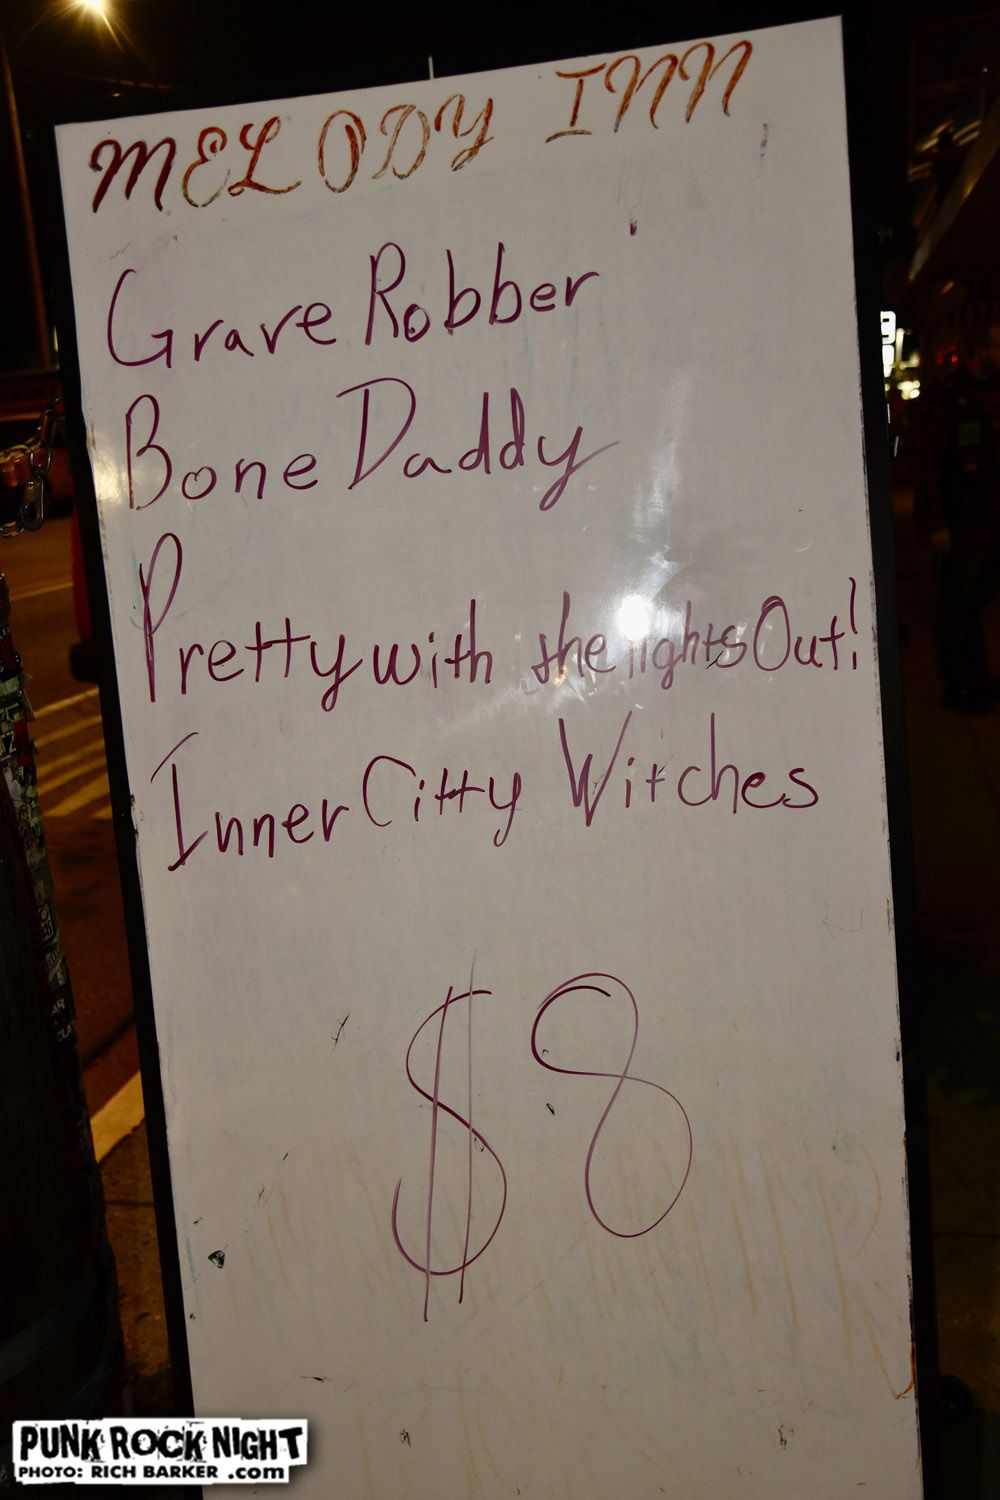 MELODY INN
Grave Robber
Bone Daddy
Pretty with the lights Out!
Inner Citty Witches
$8
PUNK ROCK NIGHT
PHOTO: RICH BARKER .com